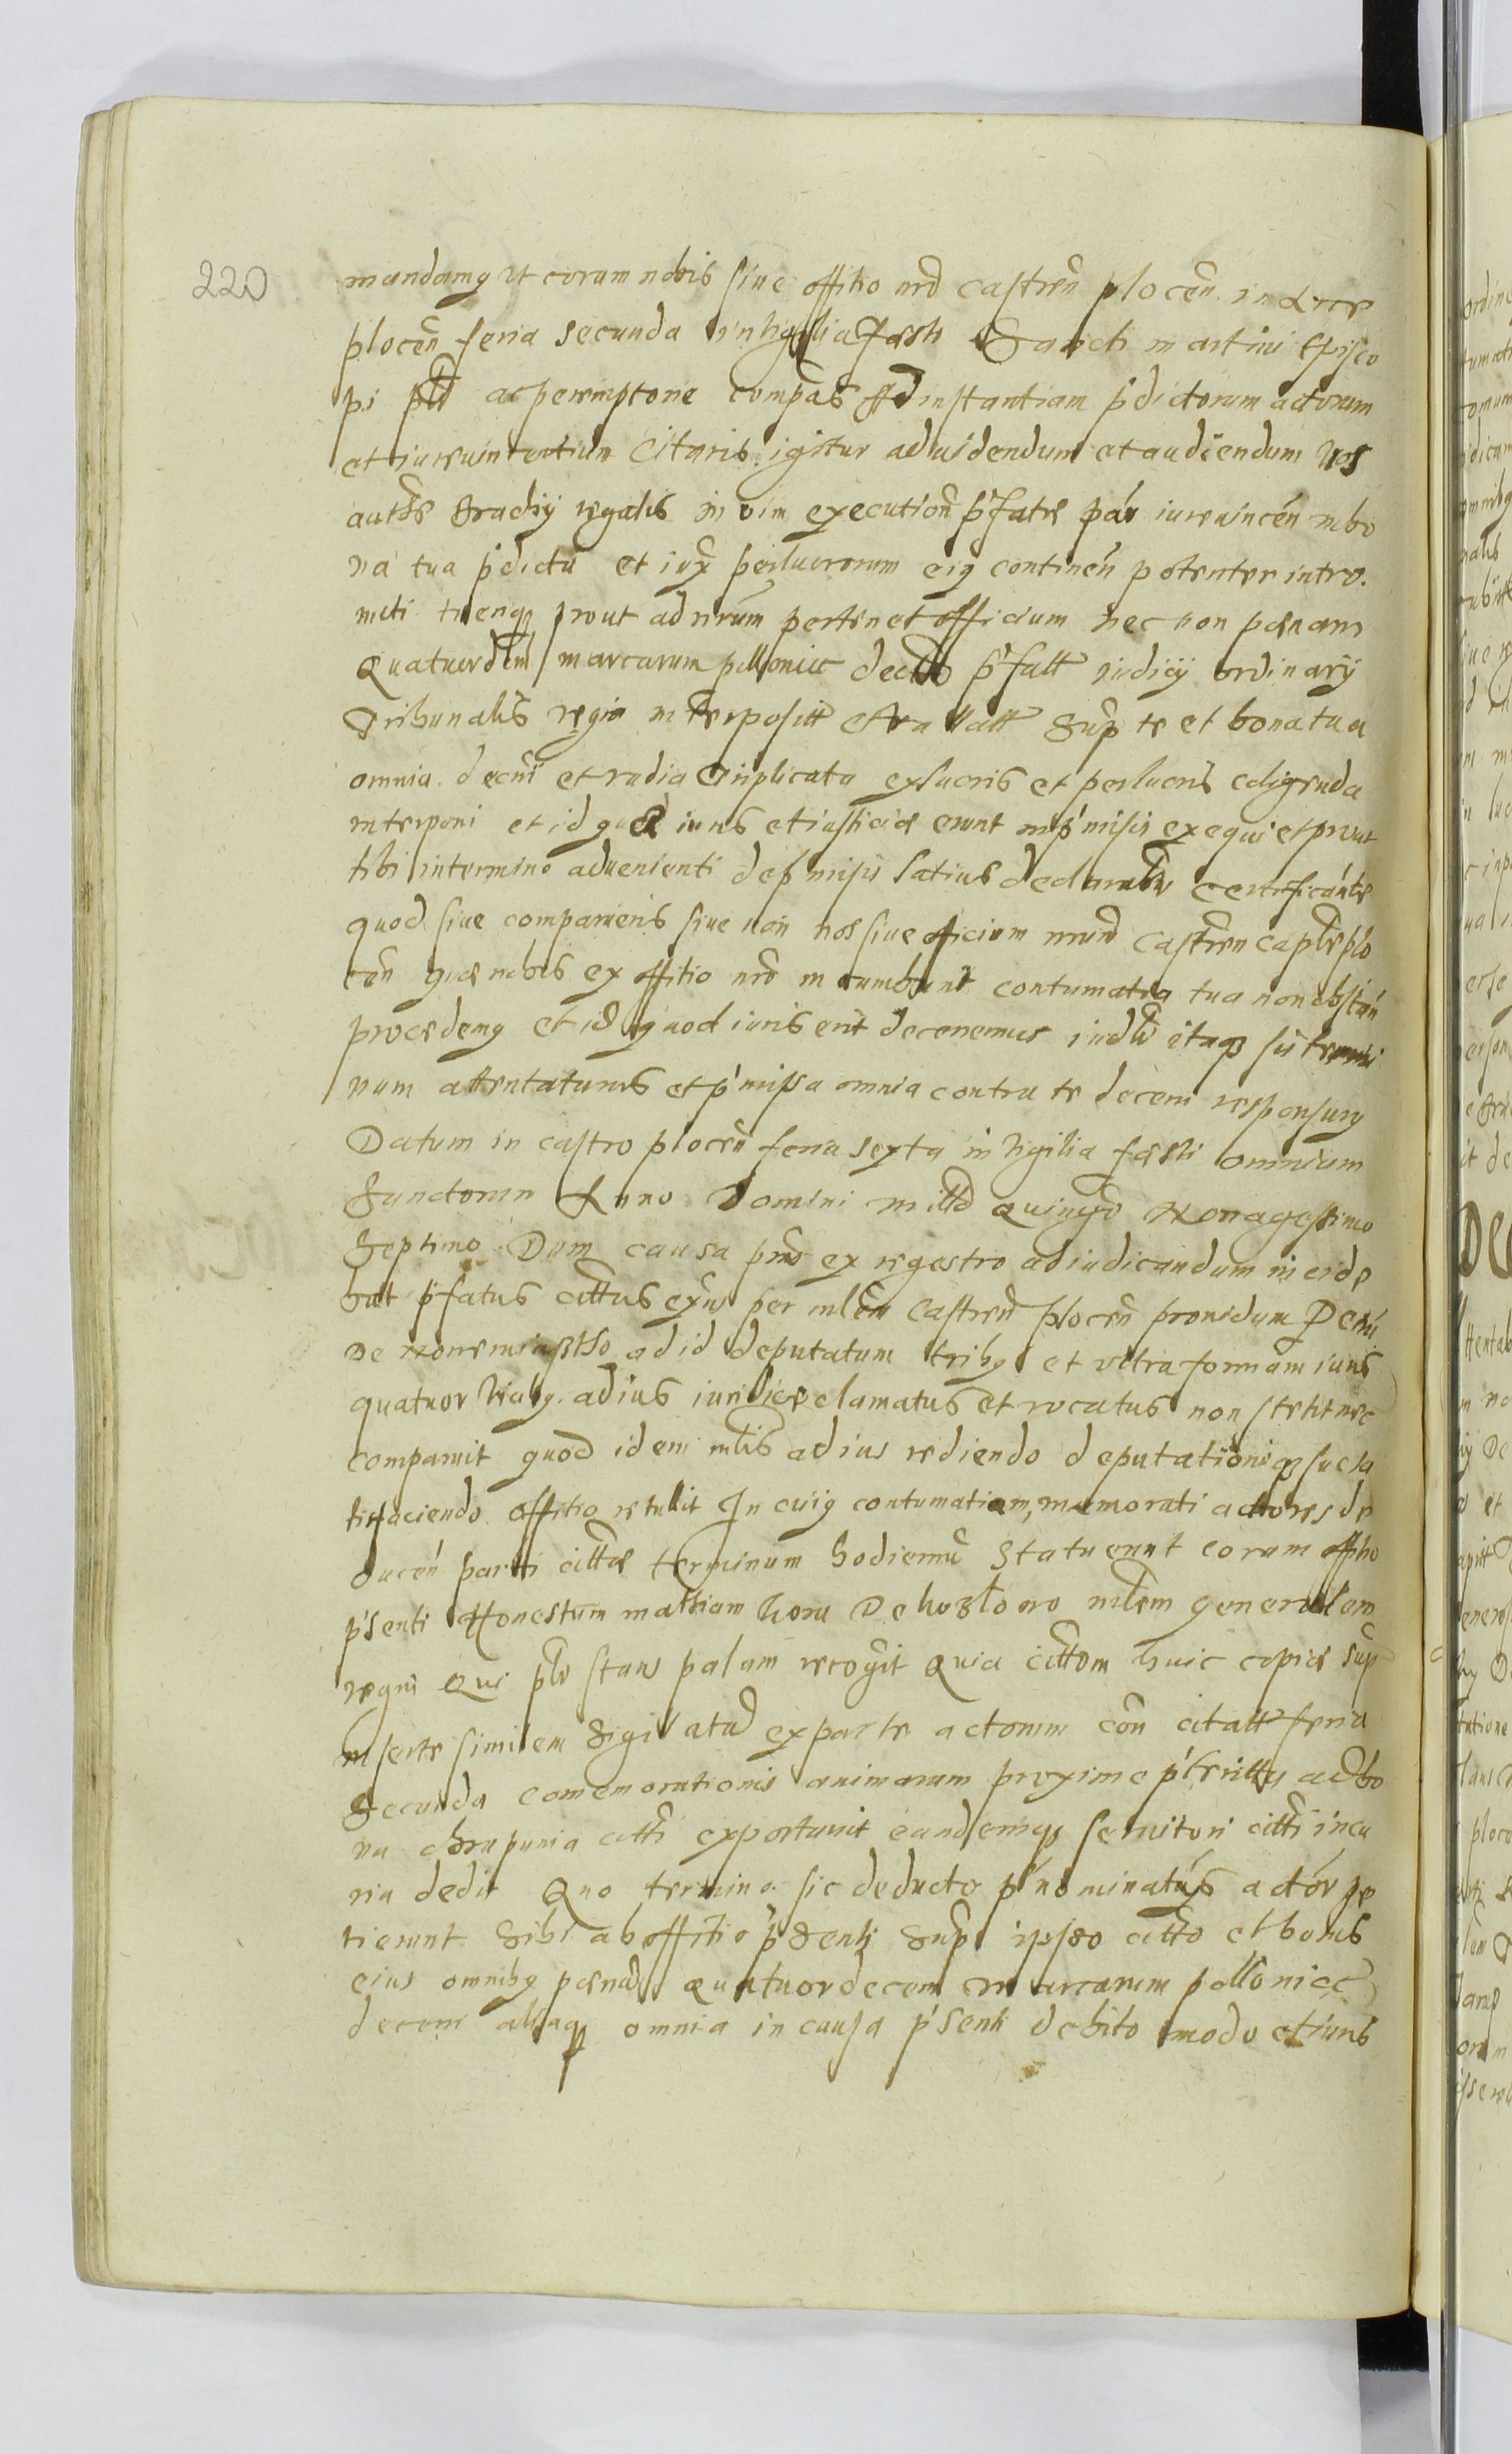 220
mandamq ut coram nobis sive offitio nrō castren̄ plocen̄ in Arce
plocen̄ feria secunda in vigilia Fæsti Sancti martini Episco
pi ac peremptorie compās Ad instantiam p̄dictorum actorum
et iurevincentium Citaris igitur ad videndum et audiendum nos
authe Brachij regalis in vim execution̄ p̄fatæ par iurevincen̄ in bo
na tua p̄dicta et iux perlucrorum eiq continen̄ potenter intro.
miti tuerique prout ad nrūm pertinet officium nec non pænam
Quatuordem marcarum pollonic p̄fatt iudicij ordinarij
Tribunalis regni interpositt et vallatt Sup te et bona tua
omnia decni et radia triplicata ex lucris et perlucris colligenda
interponi et id quod iuris et iusticiæ erunt in p̄misis exequi et prout
tibi in termino advenienti de p̄misis latius declarabr certificantes
quod sive comparueris sive non nos sive officium nrūm Castren caple plo
cen̄ quæ nobis ex offitio nrō incumbunt contumatia tua non obstan̄
procedemq et id quod iuris erit decernemus itaq sis termi
num attentaturus et p̄missa omnia contra te decerni responsurq
Datum in castro plocen̄ feria sexta in vigilia fæsti omnium
Sanctorum Anno Domini milld Quingō Nonagessimo
Septimo Dum causa pn̄s ex regestro adiudicandum incide
bat p̄fatus cittus exn̄s per mlēm Castren̄ plocen̄ providum
De ad id deputatum tribq et ultra formam iuris
quatuor vicibq ad ius iuridice clamatus et vocatus non stetit nec
comparuit quod idem mlis ad ius rediendo deputationiq suæ sa
tisfaciendo offitio retullit In cuiq contumatiam, memorati actores de
ducen̄ parti cittæ terminum hodiernū Statuerunt coram offitio
p̄senti Honestum mathiam hora De kozlowo mlem generalem
regni Qui ple stans palam recogt̄ Quia cittom huic copiæ sup
inserte similem Sigillatū ex parte actorum con̄ citatt feria
Secunda comemorationis animarum proxime p̄teritta ad bo
na citti exportavit eandemq servitori citti in cu
ria dedit Quo termino sic deducto p̄nominatus actor pe
tierunt Sibi ab offitio p̄senti Sup ipso citto et bonis
eius omnibq pænā quatuordecem marcarum pollonicc
decerni aliaq omnia in causa p̄senti debito modo et iuris